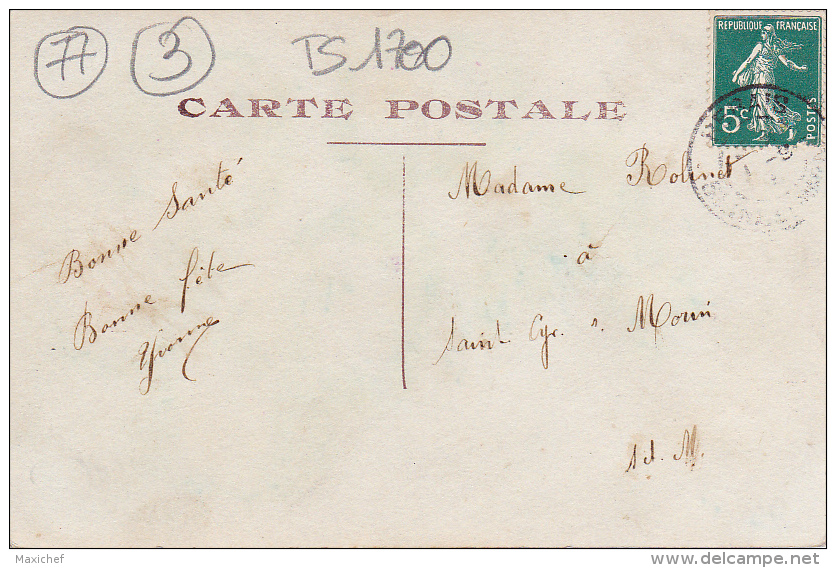 77 3 TS 1700
RÉPUBLIQUE FRANÇAISE
5c
POSTES
CARTE POSTALE
Bonne Santé
Bonne fête
Yvonne
Madame Robinet
à
Saint Cyr. s. Morin
S. et. M.
Maxichef
www.delcampe.net